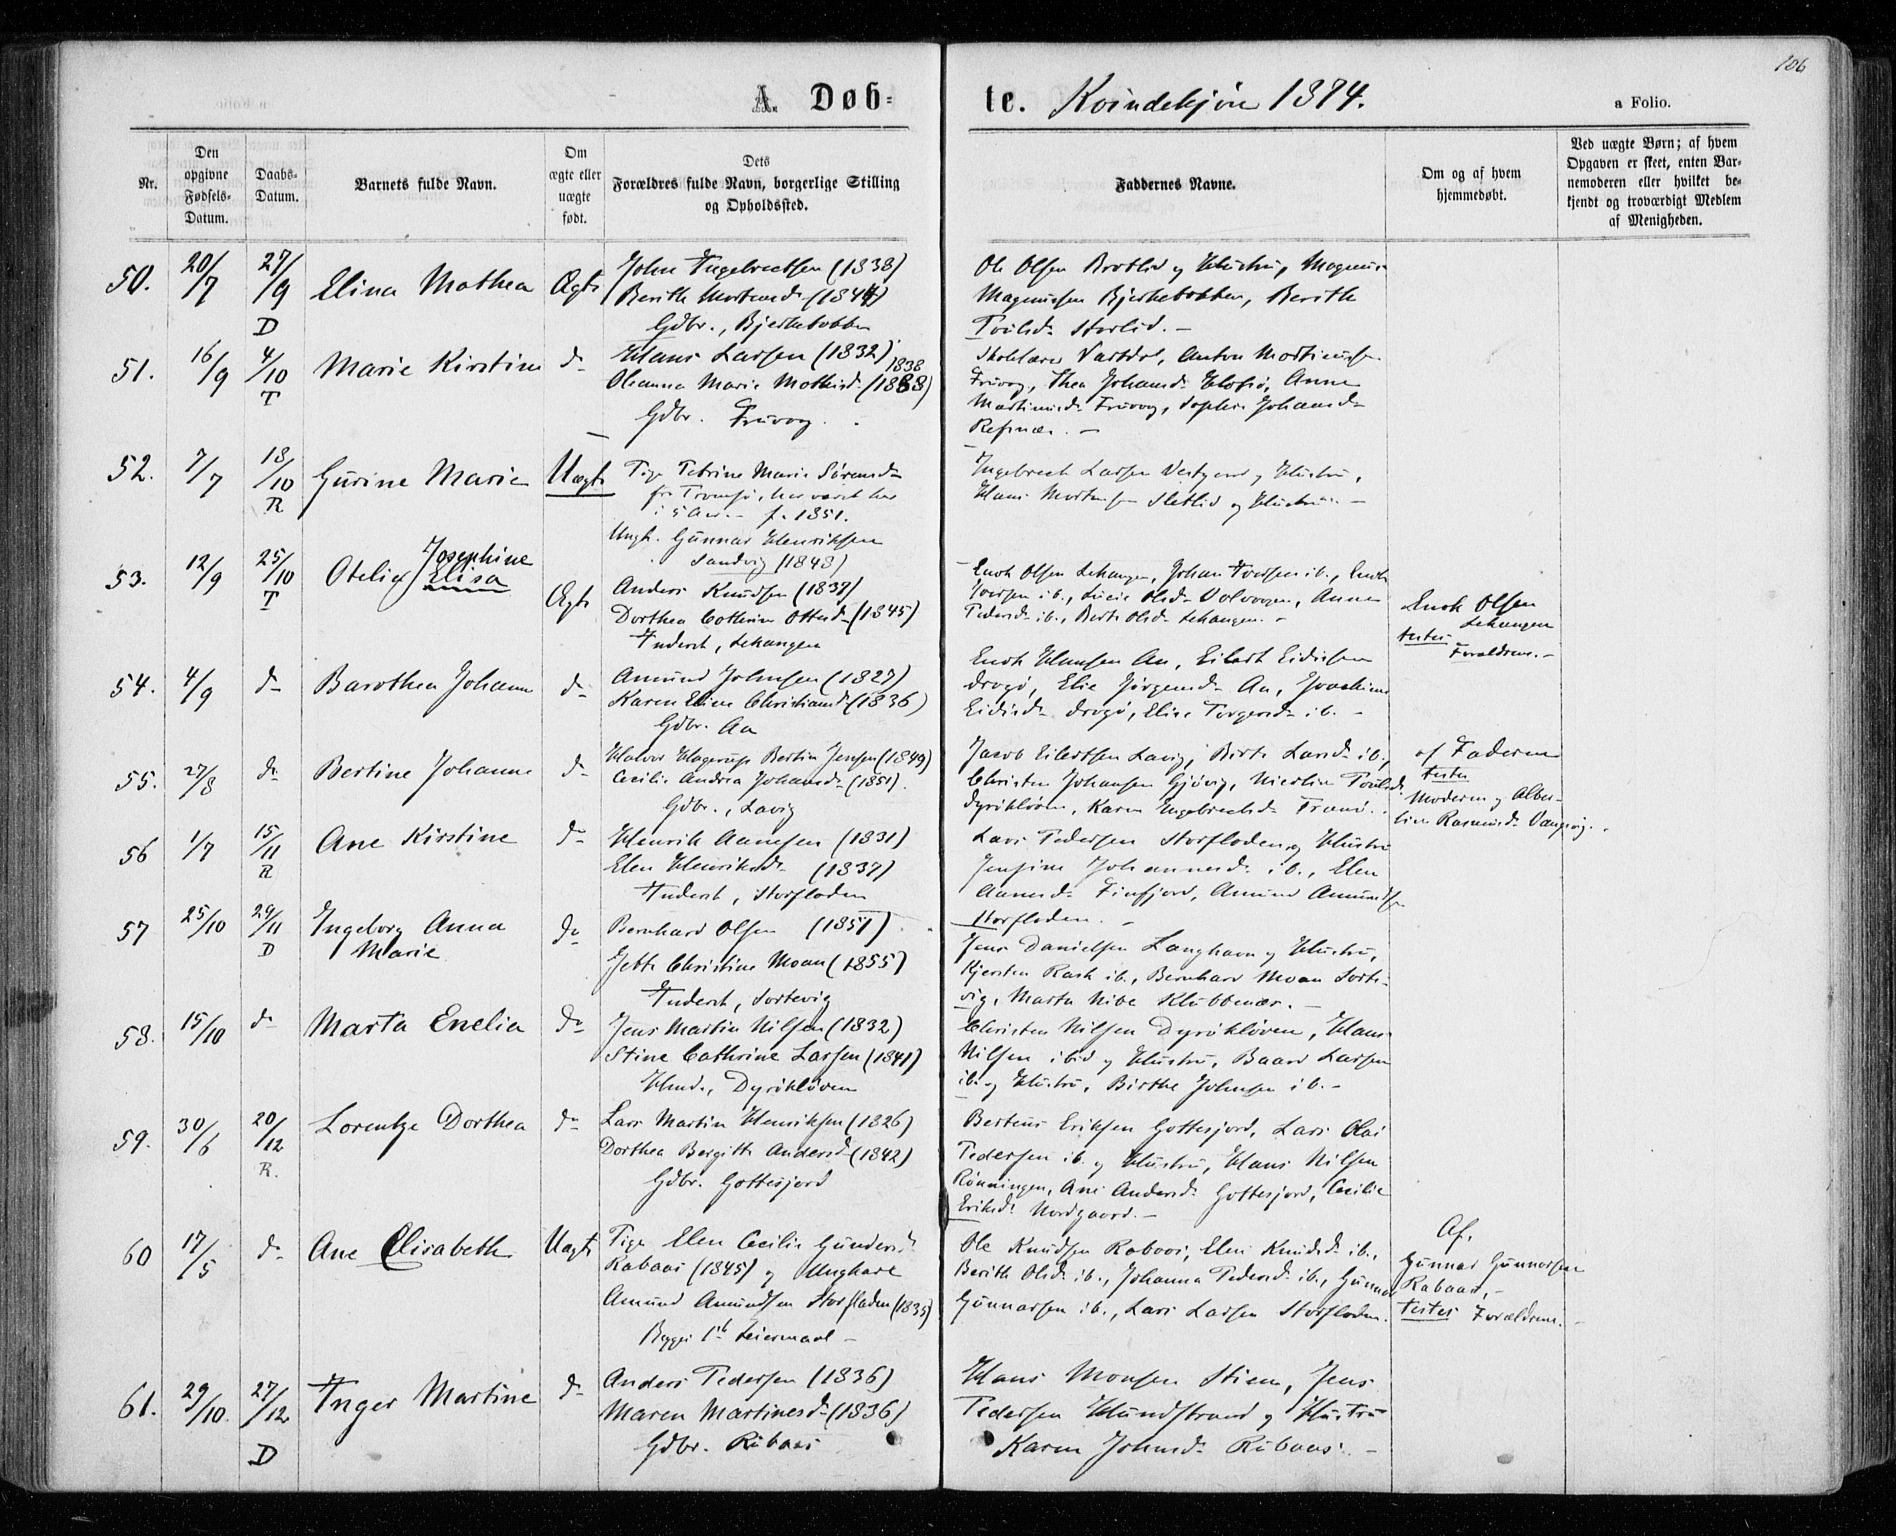 106
A. Døb=
te. Kvindekjøn 1874.
a Folio.
Nr.
Den opgivne Fødsels-Datum.
Daabs-Datum.
Barnets fulde Navn.
Om ægte eller uægte født.
Dets Forældres fulde Navn, borgerlige Stilling og Opholdssted.
Faddernes Navne.
Om og af hvem hjemmedøbt.
Ved uægte Børn; af hvem Opgaven er skeet, enten Barnemoderen eller hvilket bekjendt og troværdigt Medlem af Menigheden.
50. 20/7 27/9 D Elina Mathea Ægte
John Ingebrectsen (1838)
Berith Mortensd. (1844)
Gdbr., Bjerkebakken
Ole Olsen Brotlid og Hustru, Magnus
Magnussen Bjerkebakken, Berith
Povlsd. Storlid. -
51. 16/9 4/10 T Marie Kirstine do
Hans Larsen (1832)
1838
Oleanna Marie Mathisd. (1838)
Gdbr. Fruvog.
Skolelærer Vastdal, Anton Mortinussen
Fruvog, Thea Johansd. Klofjø, Anne
Martinusd. Fruvog, Sophie Johansd.
Refsnæs. -
52. 7/7 18/10 R Gurine Marie Uægte
Pige Petrine Marie Sørensd.
fra Tromsø, har været her
i 5 Aar. - f. 1851.
Ungk. Gunnar Henriksen
Sandvig (1848)
Ingebrect Larsen Vestgaard og Hustru,
Hans Mortensen Sletlid og Hustru. -
53. 12/9 25/10 T Otelia Josephine
Elisa
Ægte
Anders Knudsen (1837)
Dorthea Cathrine Ottesd. (1845)
Inderst, Lekangen
Enok Olsen Lekangen, Johan Iversen ib., Enok
Iversen ib., Lucie Olsd. Volvogen, Anne
Pedersd. ib., Berte Olsd. Lekangen. -
Enok Olsen
Lekangen
testes
Forældrene. -
54. 4/9 do Barothea Johanne do
Amund Johnsen (1827)
Karen Eline Christiansd. (1836)
Gdbr. Aa
Enok Hansen Aa, Eilert Eidissen
Drogø, Elie Jørgensd. Aa, Joachime
Eidisd. Drogø, Elise Torgersd. ib. -
55. 27/8 do Bertine Johanne do
Halvor Hagerup Bertin Jensen (1849)
Cecilie Andrea Johansd. (1851).
Gdbr., Lavig
Jacob Eilertsen Lavig, Birte Larsd. ib.,
Christen Johansen Gjøvig, Nicoline Povlsd.
Dyrøkløven, Karen Ingebrectsd. Tranø.
af Faderen
testes
Moderen og Alber-
tine Rasmusd. Vangsvig.
56 1/7 15/11 R Ane Kirstine do
Henrik Aanesen (1831)
Elen Henriksd. (1837)
Inderst, Storfloden
Lars Pedersen Storfloden og Hustru
Jensine Johannesd. ib., Elen
Aanesd. Finfjord, Amund Amundsen
Storfloden. -
57 25/10 29/11 D Ingeborg Anna
Marie
do
Bernhard Olsen (1851)
Jette Christine Moan (1855)
Inderst, Sortevig
Jens Danielsen Langhavn og Hustru,
Kjersten Rask ib., Bernhard Moan Sorte-
vig, Marta Nibe Klubbenæs. -
58. 15/10 do Marta Enelia do
Jens Martin Nilsen (1832)
Stine Cathrine Larsen (1841)
Hmd., Dyrøkløven
Christen Nilsen Dyrøkløven, Hans
Nilsen ibid og Hustru, Baard Larsen
ib. og Hustru, Birthe Johnsen ib. -
59. 30/6 20/12 R. Lorentze Dorthea do
Lars Martin Henriksen (1826)
Dorthea Bergitte Andersd. (1842)
Gdbr. Gottesjord
Berteus Eriksen Gottesjord, Lars Olai
Pedersen ib. og Hustru, Hans Nilsen
Rønningen, Ane Andersd. Gottesjord, Cecilie
Eriksd. Nordgaard. -
60 17/5 do Ane Elisabeth Uægte
Pige Elen Cecilie Gundersd.
Rabaas (1845) og Ungkarl
Amund Amundsen Storfloden (1835)
Begges 1ste Leiermaal -
Ole Knudsen Rabaas, Elen Knudsd. ib.,
Berith Olsd. ib., Johanna Pedersd. ib., Gunnar
Gunnarsen ib., Lars Larsen Storfloden.
Af,
Gunnar Gunnarsen
Rabaas, -
testes Forældrene. -
61. 29/10. 27/12 D Inger Martine do
Anders Pedersen (1836)
Maren Martinesd. (1836)
Gdbr. Rubaas
Hans Monsen Stien, Jens
Pedersen Hundstrand og Hustru
Karen Johnsd. Rubaas. -